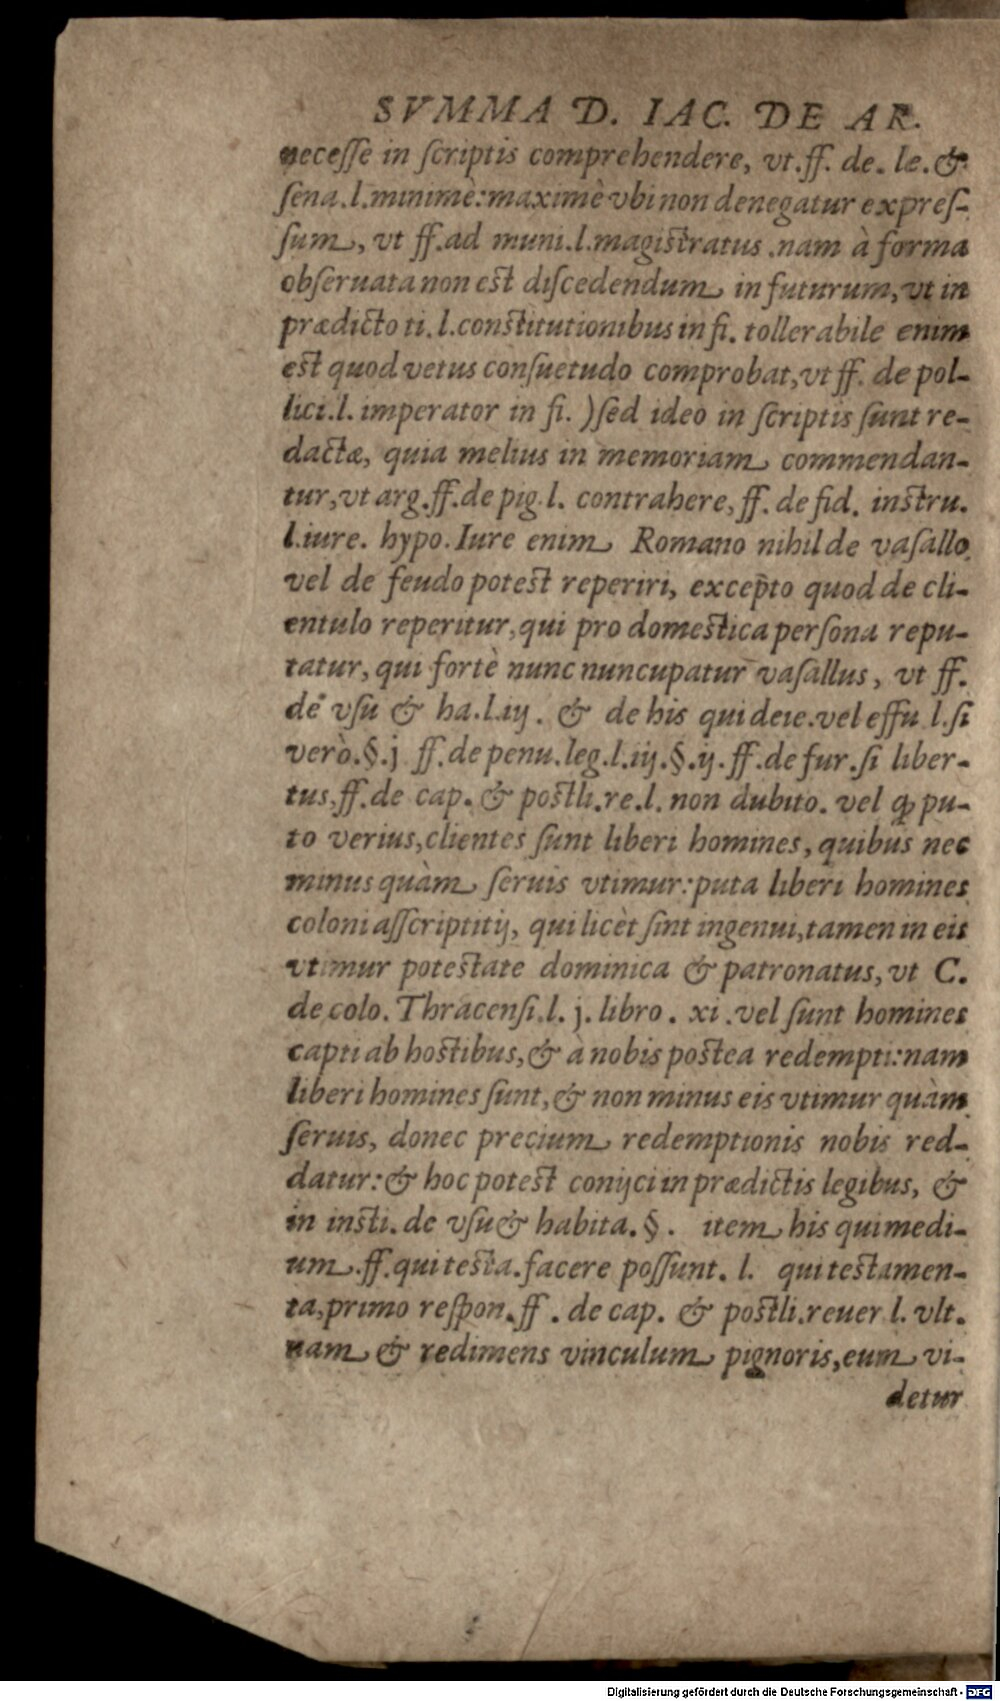 SVMMA D. IAC. DE AR.
necesse in scriptis comprehendere, vt.ff. de. le. &
sena.l.minimè: maximè vbi non denegatur expres-
sum, vt ff.ad muni.l.magistratus .nam à forma
obseruata non est discedendum in futurum, vt in
prædicto ti. l.constitutionibus in fi. tollerabile enim
est quod vetus consuetudo comprobat, vt ff. de pol-
lici.l. imperator in fi. ) sed ideo in scriptis sunt re-
dactæ, quia melius in memoriam commendan-
tur, vt arg.ff.de pig.l. contrahere, ff. de fid. instru.
l.iure. hypo. Iure enim Romano nihil de vasallo
vel de feudo potest reperiri, excepto quod de cli-
entulo reperitur, qui pro domestica persona repu-
tatur, qui fortè nunc nuncupatur vasallus, vt ff.
de vsu & ha.l.iij. & de his qui deie.vel effu l.si
verò.§.j ff.de penu.leg.l.iij.§.ij.ff.de fur.si liber-
tus, ff.de cap. & postli.re.l. non dubito. vel ꝙ pu-
to verius, clientes sunt liberi homines, quibus nec
minus quàm seruis vtimur: puta liberi homines
coloni asscriptitij, qui licèt sint ingenui, tamen in eis
vtimur potestate dominica & patronatus, vt C.
de colo. Thracensi.l. j. libro. xi .vel sunt homines
capti ab hostibus, & à nobis postea redempti: nam
liberi homines sunt, & non minus eis vtimur quàm
seruis, donec precium redemptionis nobis red-
datur: & hoc potest conijci in prædictis legibus, &
in insti. de vsu & habita. §. item his qui medi-
um .ff.qui testa.facere possunt. l. qui testamen-
ta, primo respon.ff . de cap. & postli.reuer l. vlt.
nam & redimens vinculum pignoris, eum vi-
detur
Digitalisierung gefördert durch die Deutsche Forschungsgemeinschaft - DFG